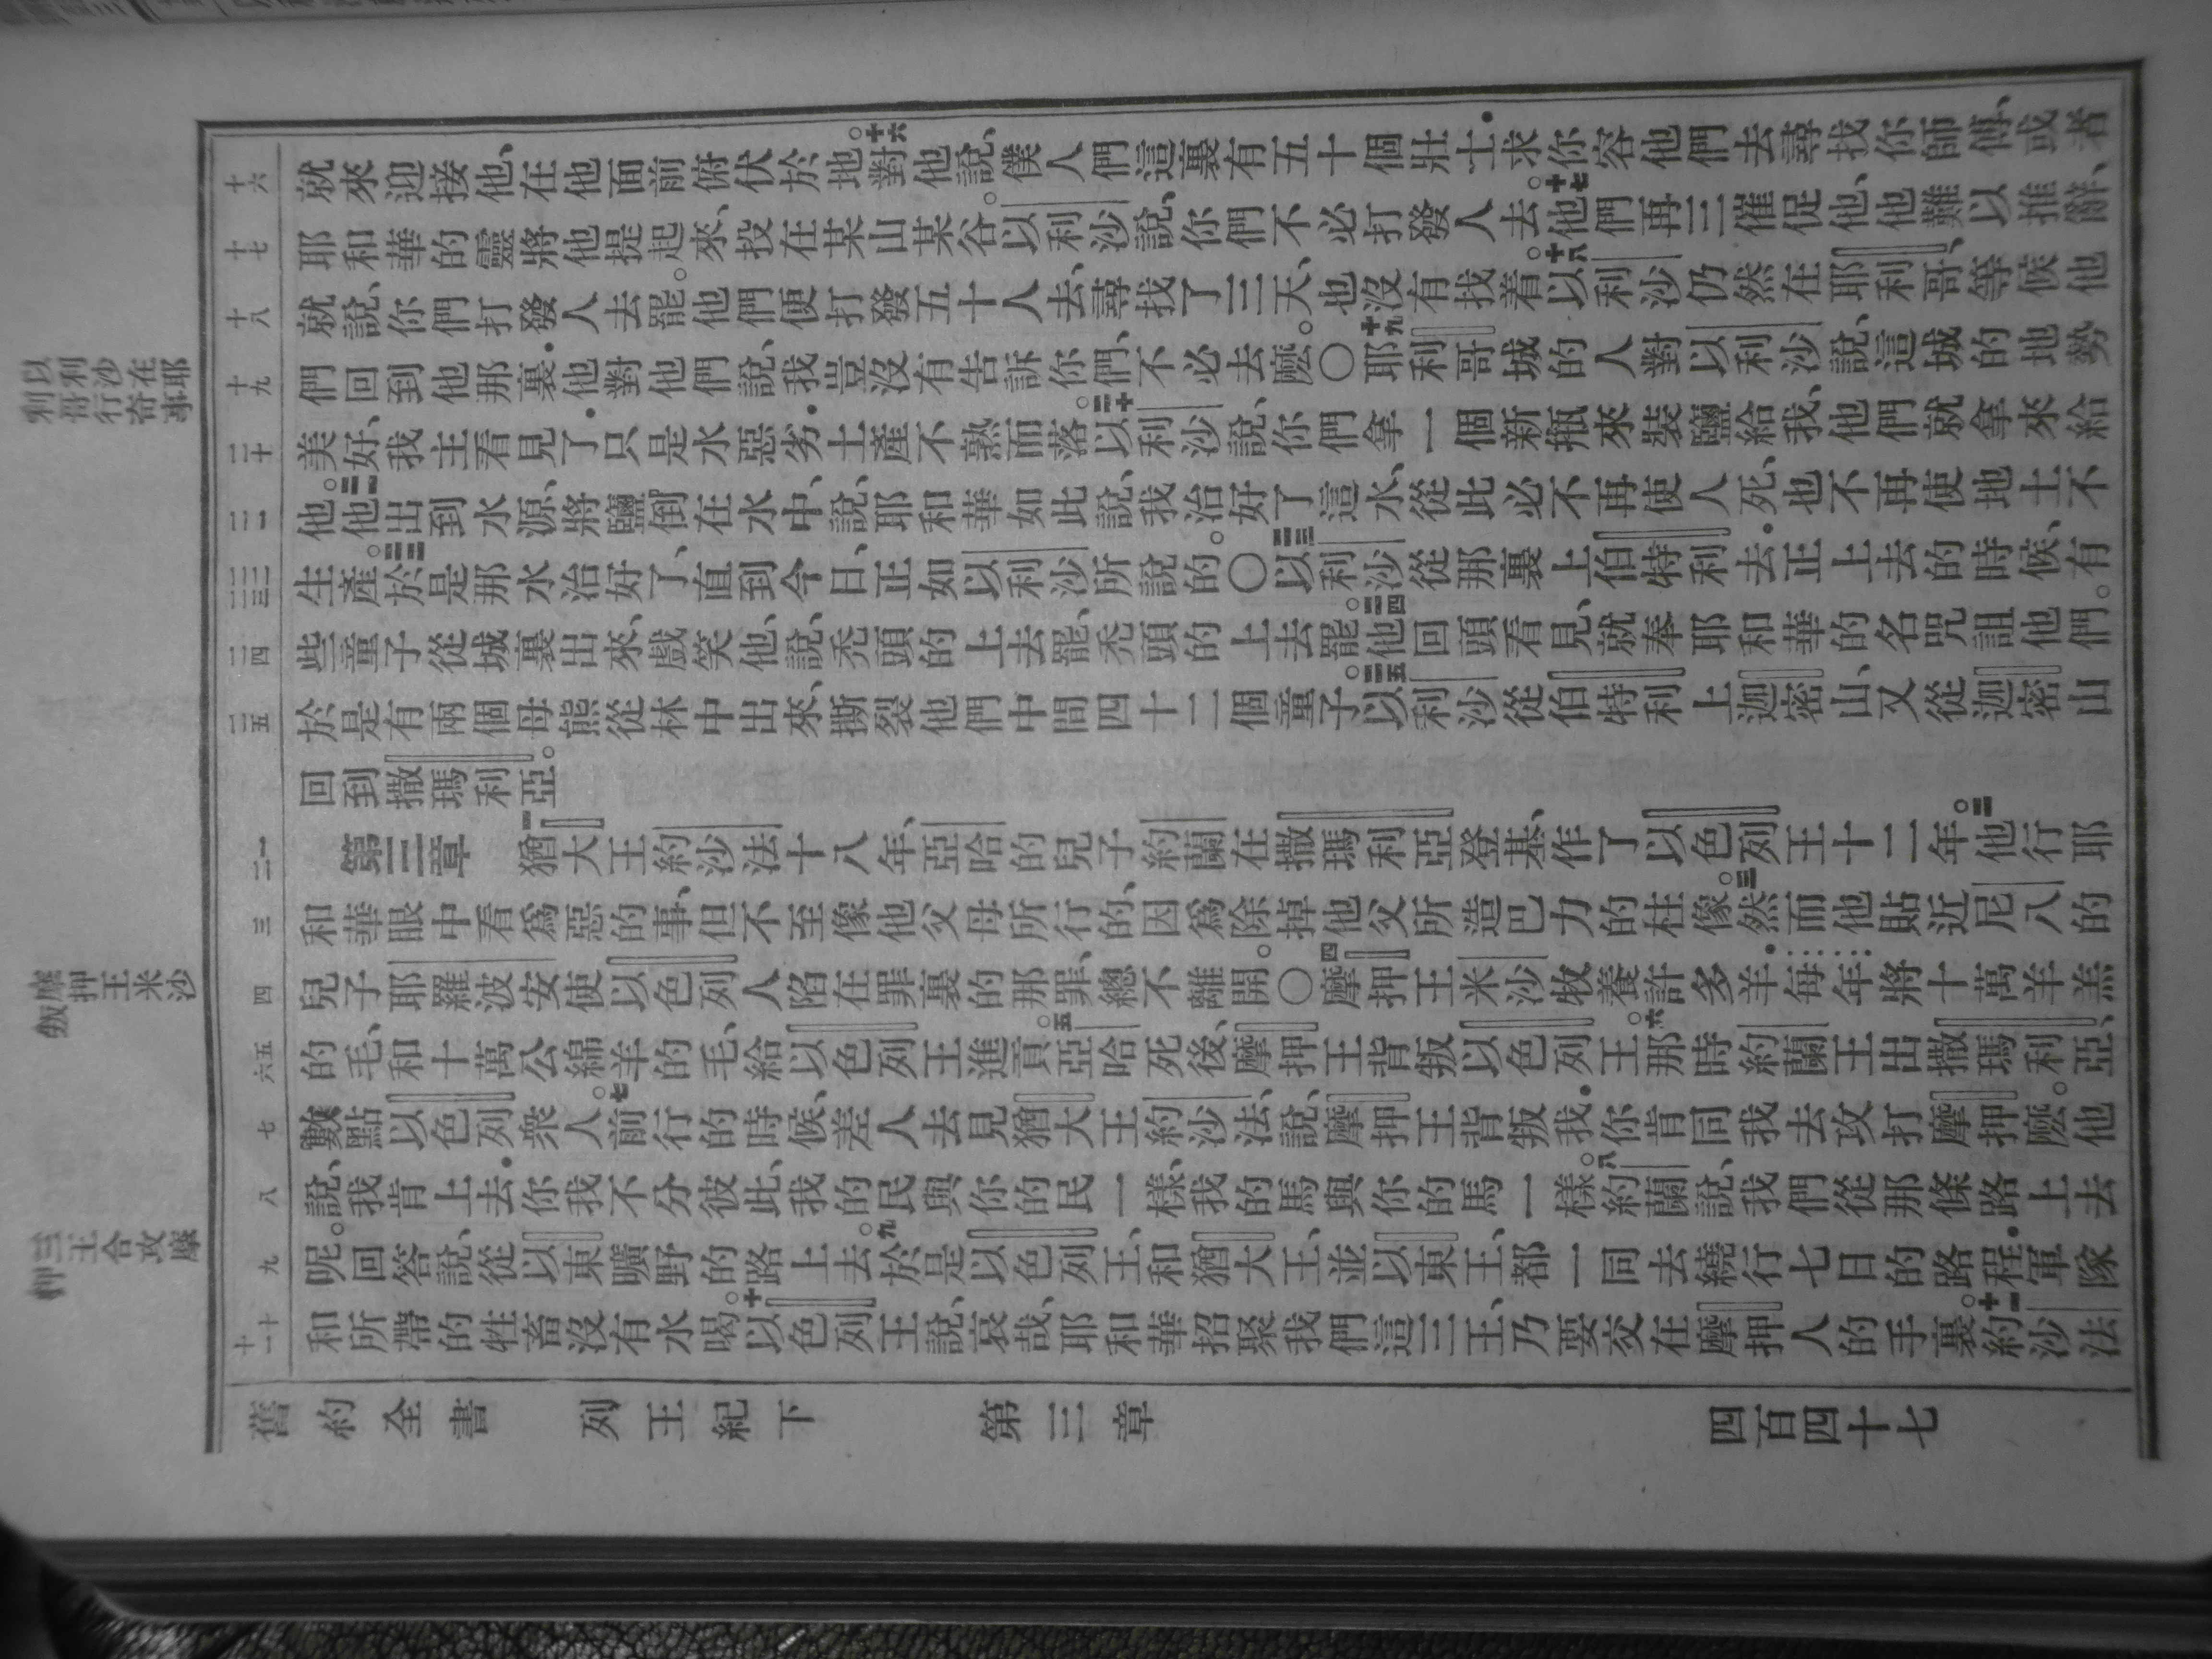 以利沙在耶
利哥行奇事
摩押王米沙
叛
三王合攻摩
押
十六
十七
十八
十九
二十
二一
二二 二三
二四
二五
一 二
三
四
五 六
七
八
九
十 十一
就來迎接他、在他面前俯伏於地。十六對他說、僕人們這裏有五十個壯士．求你容他們去尋找你師傅、或者
耶和華的靈將他提起來、投在某山某谷。以利沙說、你們不必打發人去。十七他們再三催促他、他難以推辭、
就說、你們打發人去罷。他們便打發五十人去、尋找了三天、也沒有找着。十八以利沙仍然在耶利哥、等候他
們回到他那裏．他對他們說、我豈沒有告訴你們、不必去麼。〇十九耶利哥城的人對以利沙說、這城的地勢
美好、我主看見了．只是水惡劣．土產不熟而落。二十以利沙說、你們拿一個新瓶來裝鹽給我、他們就拿來給
他。二一他出到水源、將鹽倒在水中、說、耶和華如此說、我治好了這水、從此必不再使人死、也不再使地土不
生產。二二於是那水治好了、直到今日、正如以利沙所說的。〇二三以利沙從那裏上伯特利去．正上去的時候、有
些童子從城裏出來、戲笑他、說、禿頭的上去罷、禿頭的上去罷。二四他回頭看見、就奉耶和華的名咒詛他們。
於是有兩個母熊從林中出來、撕裂他們中間四十二個童子。二五以利沙從伯特利上迦密山、又從迦密山
回到撒瑪利亞。
第三章　一猶大王約沙法十八年、亞哈的兒子約蘭在撒瑪利亞登基、作了以色列王十二年。二他行耶
和華眼中看爲惡的事、但不至像他父母所行的、因爲除掉他父所造巴力的柱像。三然而他貼近尼八的
兒子耶羅波安使以色列人陷在罪裏的那罪、總不離開。〇四摩押王米沙牧養許多羊．每年將十萬羊羔
的毛、和十萬公綿羊的毛、給以色列王進貢。五亞哈死後、摩押王背叛以色列王。六那時約蘭王出撒瑪利亞、
數點以色列衆人。七前行的時候、差人去見猶大王約沙法、說、摩押王背叛我．你肯同我去攻打摩押麼。他
說、我肯上去．你我不分彼此、我的民與你的民一樣、我的馬與你的馬一樣。八約蘭說、我們從那條路上去
呢。回答說、從以東曠野的路上去。九於是以色列王、和猶大王、並以東王、都一同去繞行七日的路程．軍隊
和所帶的牲畜沒有水喝。十以色列王說、哀哉、耶和華招聚我們這三王、乃要交在摩押人的手裏。十一約沙法
舊約全書　列王紀下　第三章　四百四十七